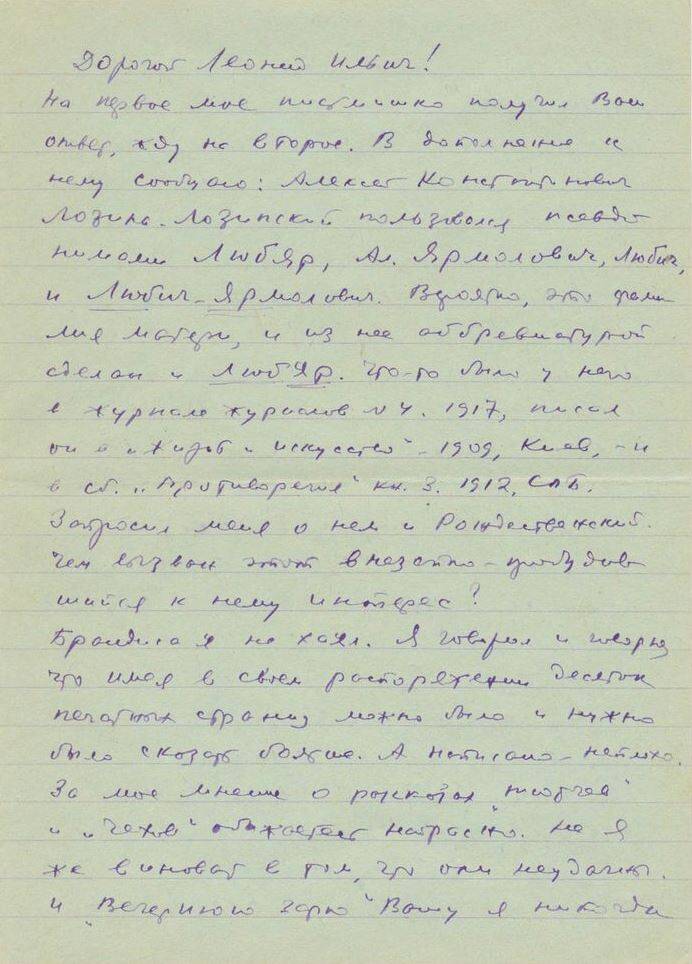 Дорогой Леонид Ильич!
На первое мое письмишко получил Ваш
ответ, жду на второе. В дополнение к
нему сообщаю: Алексей Константинович
Лозина-Лозинский пользовался псевдо
нимами Любяр, Ал. Ярмолович, Любич,
и Любич-Ярмолович. Вероятно, это фами
лия матери, и из нее аббревиатурой
сделан и Любяр. Что-то было у него
в журнале журналов №4. 1917, писал
он в "Жизнь и искусство" - 1909, Киев, - и
в сб. "Противоречия" кн. 3. 1912, СПБ.
Запросил меня о нем и Рождественский.
Чем вызван этот внезапно-пробудив
шийся к нему интерес?
Брандиса я не хаял. Я говорил и говорю,
что имея в своем распоряжении десяток
печатных страниц можно было и нужно
было сказать больше. А написано - неплохо.
За мое мнение о рассказах
и "Чехов" обижаетесь напрасно. Не я
же виноват в том, что они неудачны.
И "Вечернюю зарю" Вашу я никогда